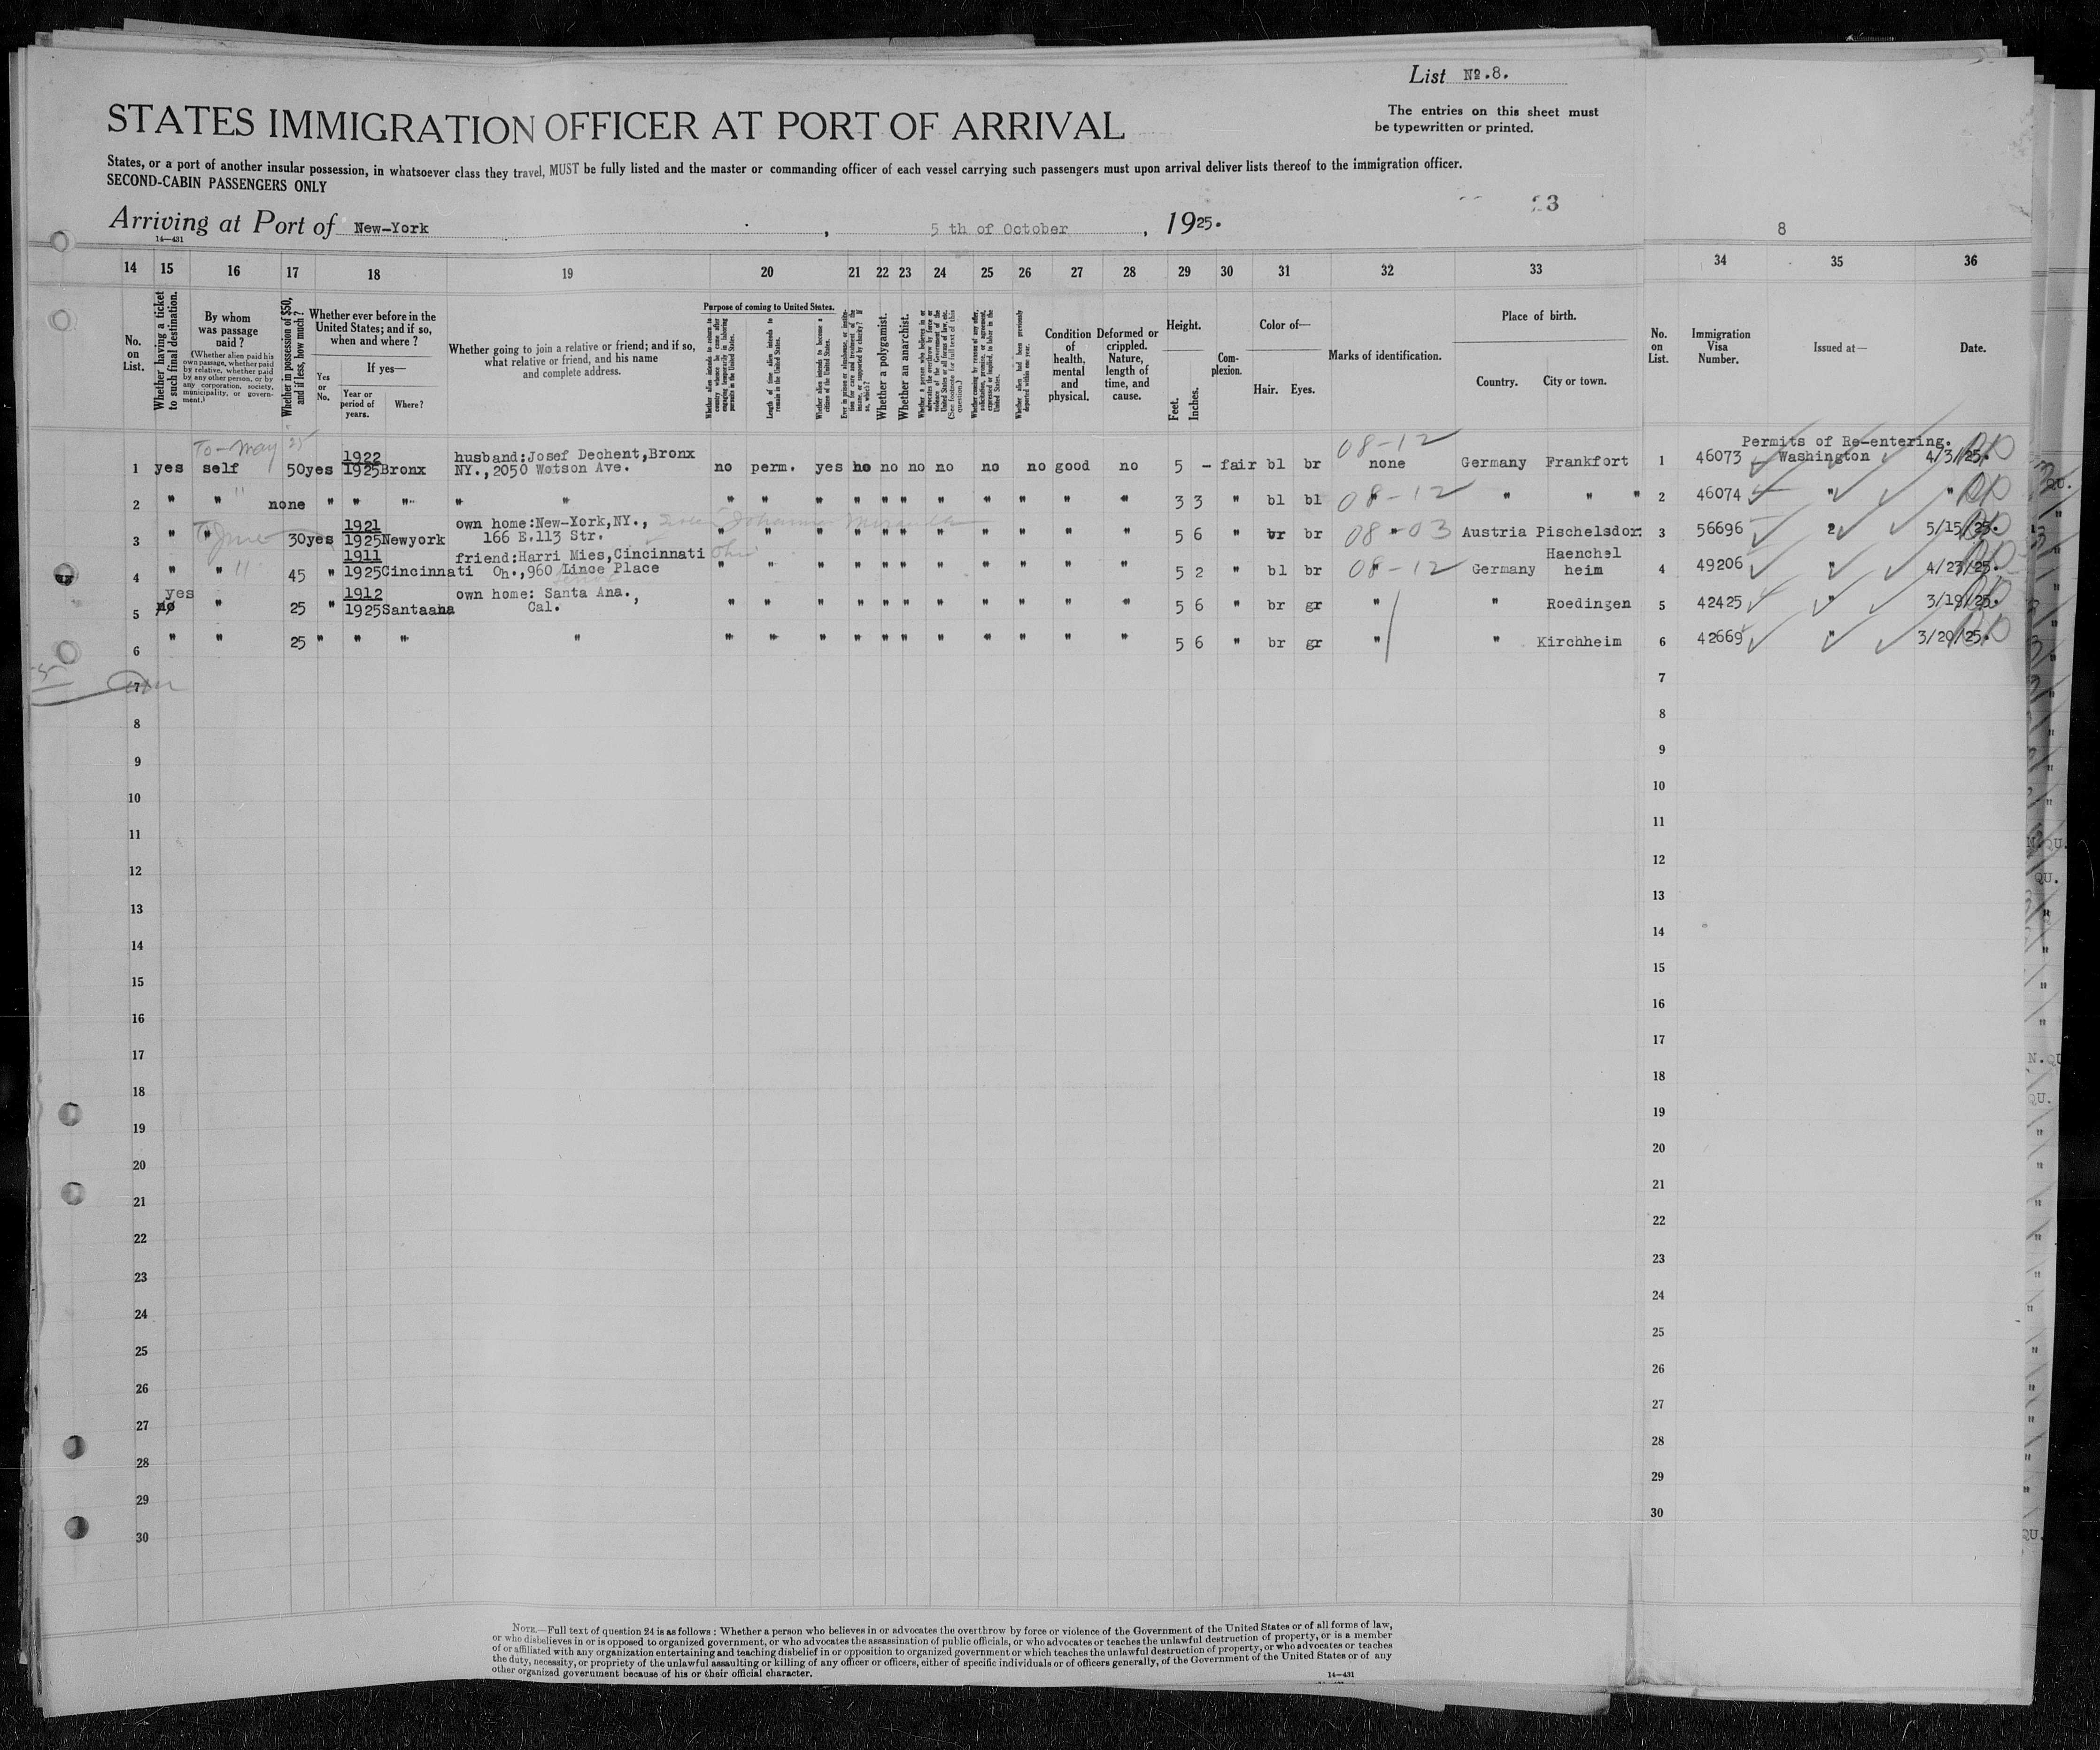 List No.8.
STATES IMMIGRATION OFFICER AT PORT OF ARRIVAL
The entries on this sheet must
be typewritten or printed.
States, or a port of another insular possession, in whatsoever class they travel, MUST be fully listed and the master or commanding officer of each vessel carrying such passengers must upon arrival deliver lists thereof to the immigration officer.
SECOND-CABIN PASSENGERS ONLY
Arriving at Port of New-York, 5 th of October, 1925.
14—431
8
14 15 16 17 18 19 20 21 22 23 24 25 26 27 28 29 30 31 32 33 34 35 36
No. on List.
Whether having a ticket to such final destination.
By whom was passage paid?
(Whether alien paid his own passage, whether paid by relative, whether paid by any other person, or by any corporation, society, municipality, or government.)
Whether in possession of $50, and if less, how much?
Whether ever before in the United States; and if so, when and where?
Yes or No.
If yes—
Year or period of years.
Where?
Whether going to join a relative or friend; and if so, what relative or friend, and his name and complete address.
Purpose of coming to United States.
Length of time alien intends to remain in the United States.
Whether alien intends to become a citizen of the United States.
Whether a polygamist.
Whether an anarchist.
Condition of health, mental and physical.
Deformed or crippled. Nature, length of time, and cause.
Height.
Feet. Inches.
Complexion.
Color of—
Hair. Eyes.
Marks of identification.
Place of birth.
Country. City or town.
No. on List.
Immigration Visa Number.
Issued at—
Date.
To - May 25 1922 husband:Josef Dechent,Bronx 08-12 Permits of Re-entering.
1 yes self 50 yes 1925 Bronx NY.,2050 Watson Ave. no perm. yes no no no no no no good no 5 - fair bl br none Germany Frankfort 1 46073 Washington 4/3/25.
2 " " none " " " " " " " " " " " " " " " " " 3 3 " bl bl 08-12 " " " 2 46074 " "
1921 own home:New-York,NY.,
3 " " 30 yes 1925 Newyork 166 E.113 Str. " " " " " " " " " " " 5 6 " br br 08-03 Austria Pischelsdor. 3 56696 5/15/25.
1911 friend:Harri Mies,Cincinnati Ohio Haenchel
4 " " 45 " 1925 Cincinnati Oh.,960 Lince Place " " " " " " " " " " " 5 2 " bl br 08-12 Germany heim 4 49206 " 4/23/25.
yes 1912 own home: Santa Ana.,
5 no " 25 " 1925 Santaana Cal. " " " " " " " " " " " 5 6 " br gr " " Roedingen 5 42425 " 3/19/25.
6 " " 25 " " " " " " " " " " " " " " " 5 6 " br gr " " Kirchheim 6 42669 " 3/20/25.
7 7
8 8
9 9
10 10
11 11
12 12
13 13
14 14
15 15
16 16
17 17
18 18
19 19
20 20
21 21
22 22
23 23
24 24
25 25
26 26
27 27
28 28
29 29
30 30
NOTE.—Full text of question 24 is as follows: Whether a person who believes in or advocates the overthrow by force or violence of the Government of the United States or of all forms of law,
or who disbelieves in or is opposed to organized government, or who advocates the assassination of public officials, or who advocates or teaches the unlawful destruction of property, or is a member
of or affiliated with any organization entertaining and teaching disbelief in or opposition to organized government or which teaches the unlawful destruction of property, or who advocates or teaches
the duty, necessity, or propriety of the unlawful assaulting or killing of any officer or officers, either of specific individuals or of officers generally, of the Government of the United States or of any
other organized government because of his or their official character.
14—431